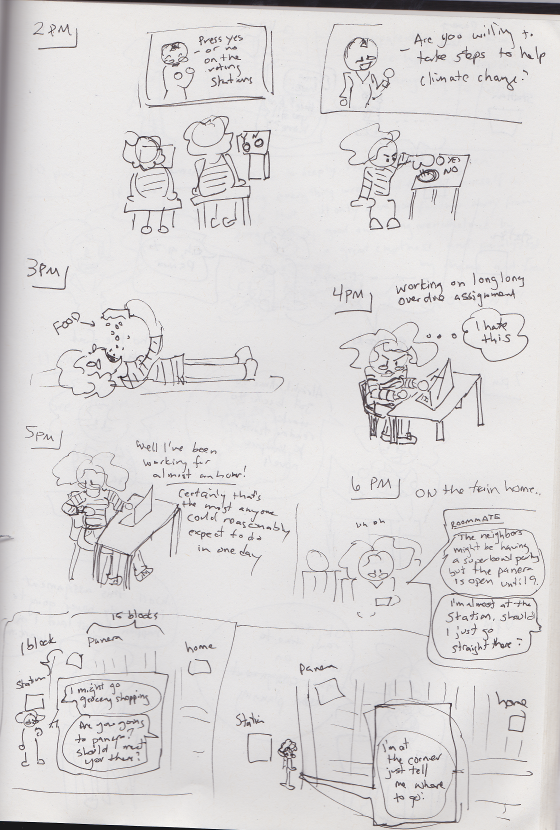 2 PM
Press yes
or no
on the
voting
stations
Are you willing to
take steps to help
climate change?
YES
NO
3 PM
FOOD
4 PM
working on long long
overdue assignment
I hate
this
5 PM
Well I've been
working for
almost an hour!
Certainly that's
the most anyone
could reasonably
expect to do
in one day
6 PM
ON the train home..
uh oh
ROOMMATE
The neighbors
might be having
a superbowl party
but the panera
is open until 9.
I'm almost at the
station, should
I just go
straight there?
15 blocks
1 block
Panera
home
Station
I might go
grocery shopping
Are you going
to panera?
should I meet
you there?
Panera
home
Station
I'm at
the corner
just tell
me where
to go!